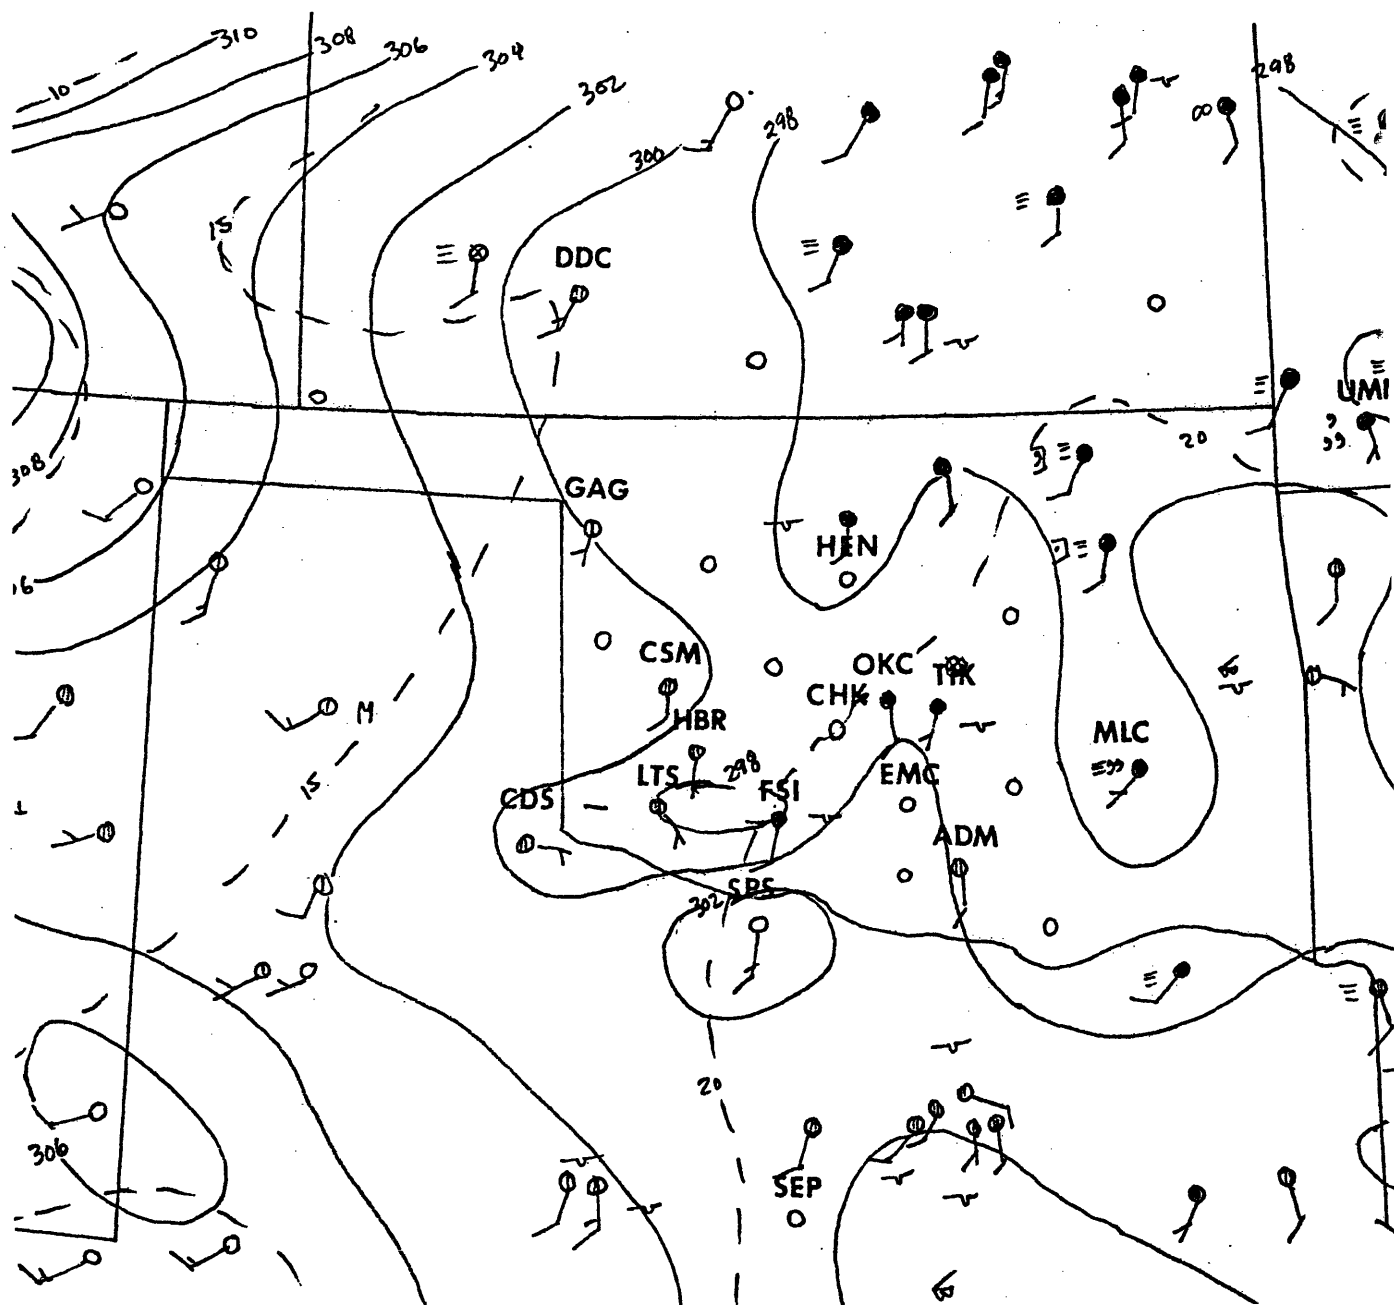 310
308
306
304
302
298
298
10
300
15
DDC
UMI
308
20
GAG
HEN
CSM
OKC
TIK
CHK
HBR
M
MLC
LTS
298
FSI
EMC
15
CDS
ADM
SPS
302
20
306
SEP